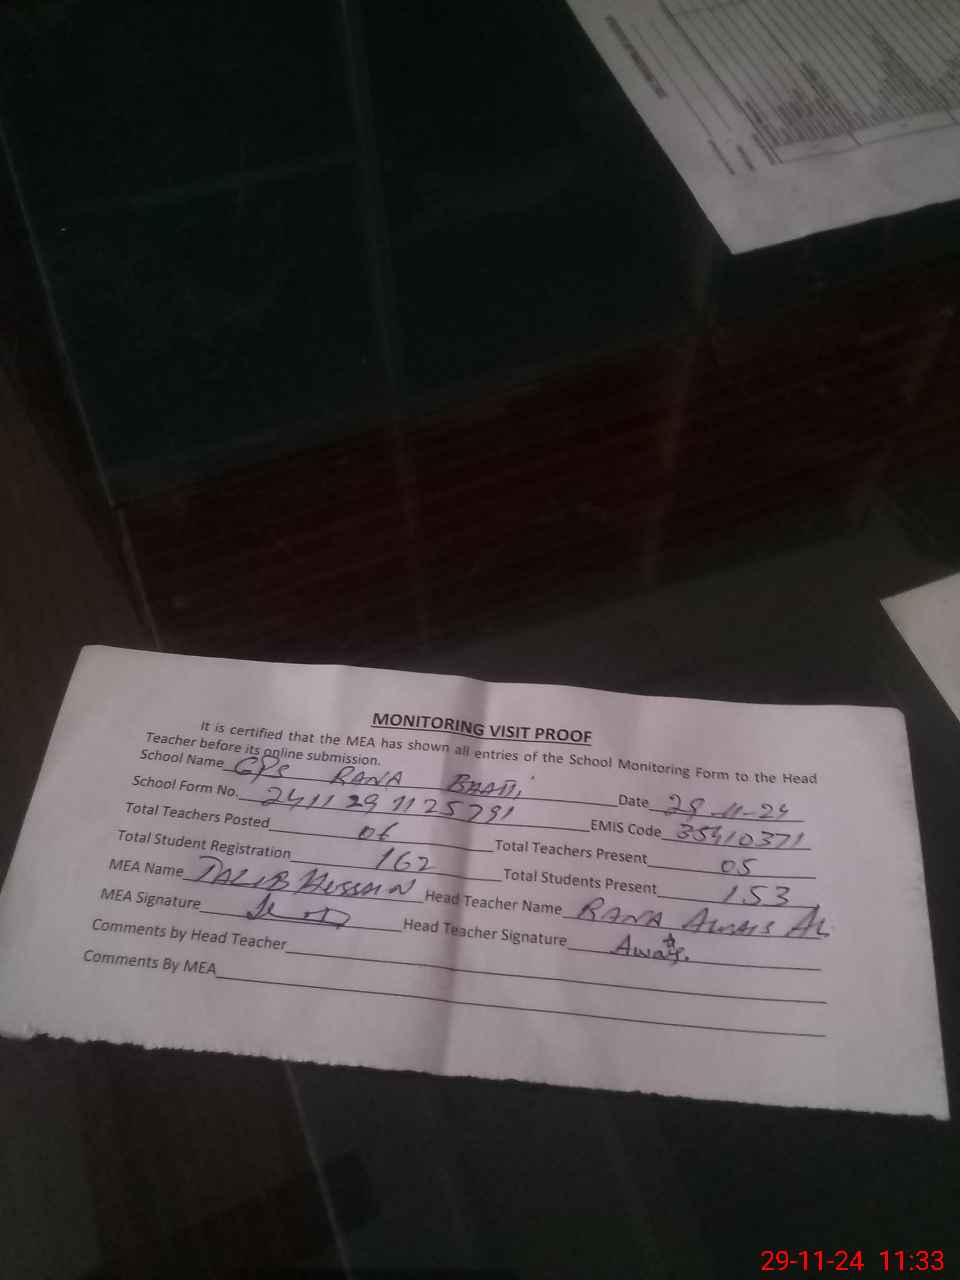 MONITORING VISIT PROOF
It is certified that the MEA has shown all entries of the School Monitoring Form to the Head
Teacher before its online submission.
School Name GPS RANA BHATTI Date 29-11-24
School Form No. 2411291125791 EMIS Code 35410371
Total Teachers Posted 06 Total Teachers Present 05
Total Student Registration 162 Total Students Present 153
MEA Name TALIB HUSSAIN Head Teacher Name RANA AWAIS AL
MEA Signature Head Teacher Signature Awais.
Comments by Head Teacher
Comments By MEA
29-11-24 11:33